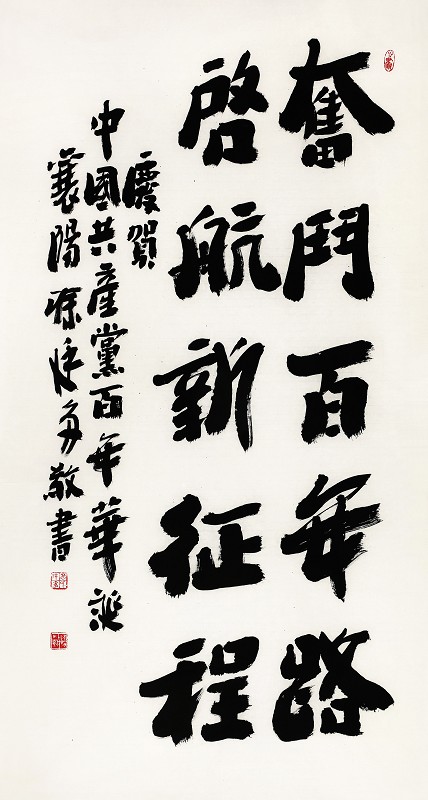 奮鬥百年路
啓航新征程
慶賀
中國共產黨百年華誕
襄陽涂廷多敬書